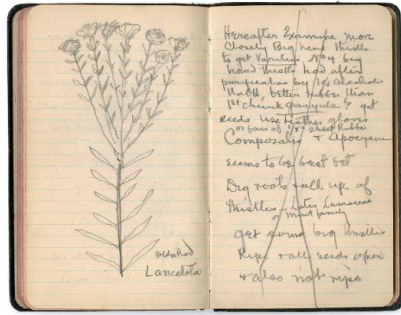 Lanceolota
Hereafter Examine more
Closely Big head thistle
to get Varieties
head thistle had after
purification by 1% Alcoholic
NaOH better rubber than
1st chunk guayule & get
seeds Use leather gloves
or face of 1/8" sheet Rubber
Composatae & Apocynum
seems to be best bet
Dig roots & all up of
thistles Later
or mint family
get some big
Ripe & all seeds open
& also not ripe